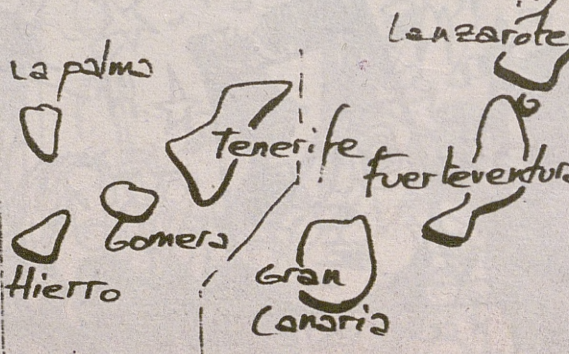 Lanzarote
La palma
Tenerife
Fuerteventura
Gomera
Gran
Canaria
Hierro